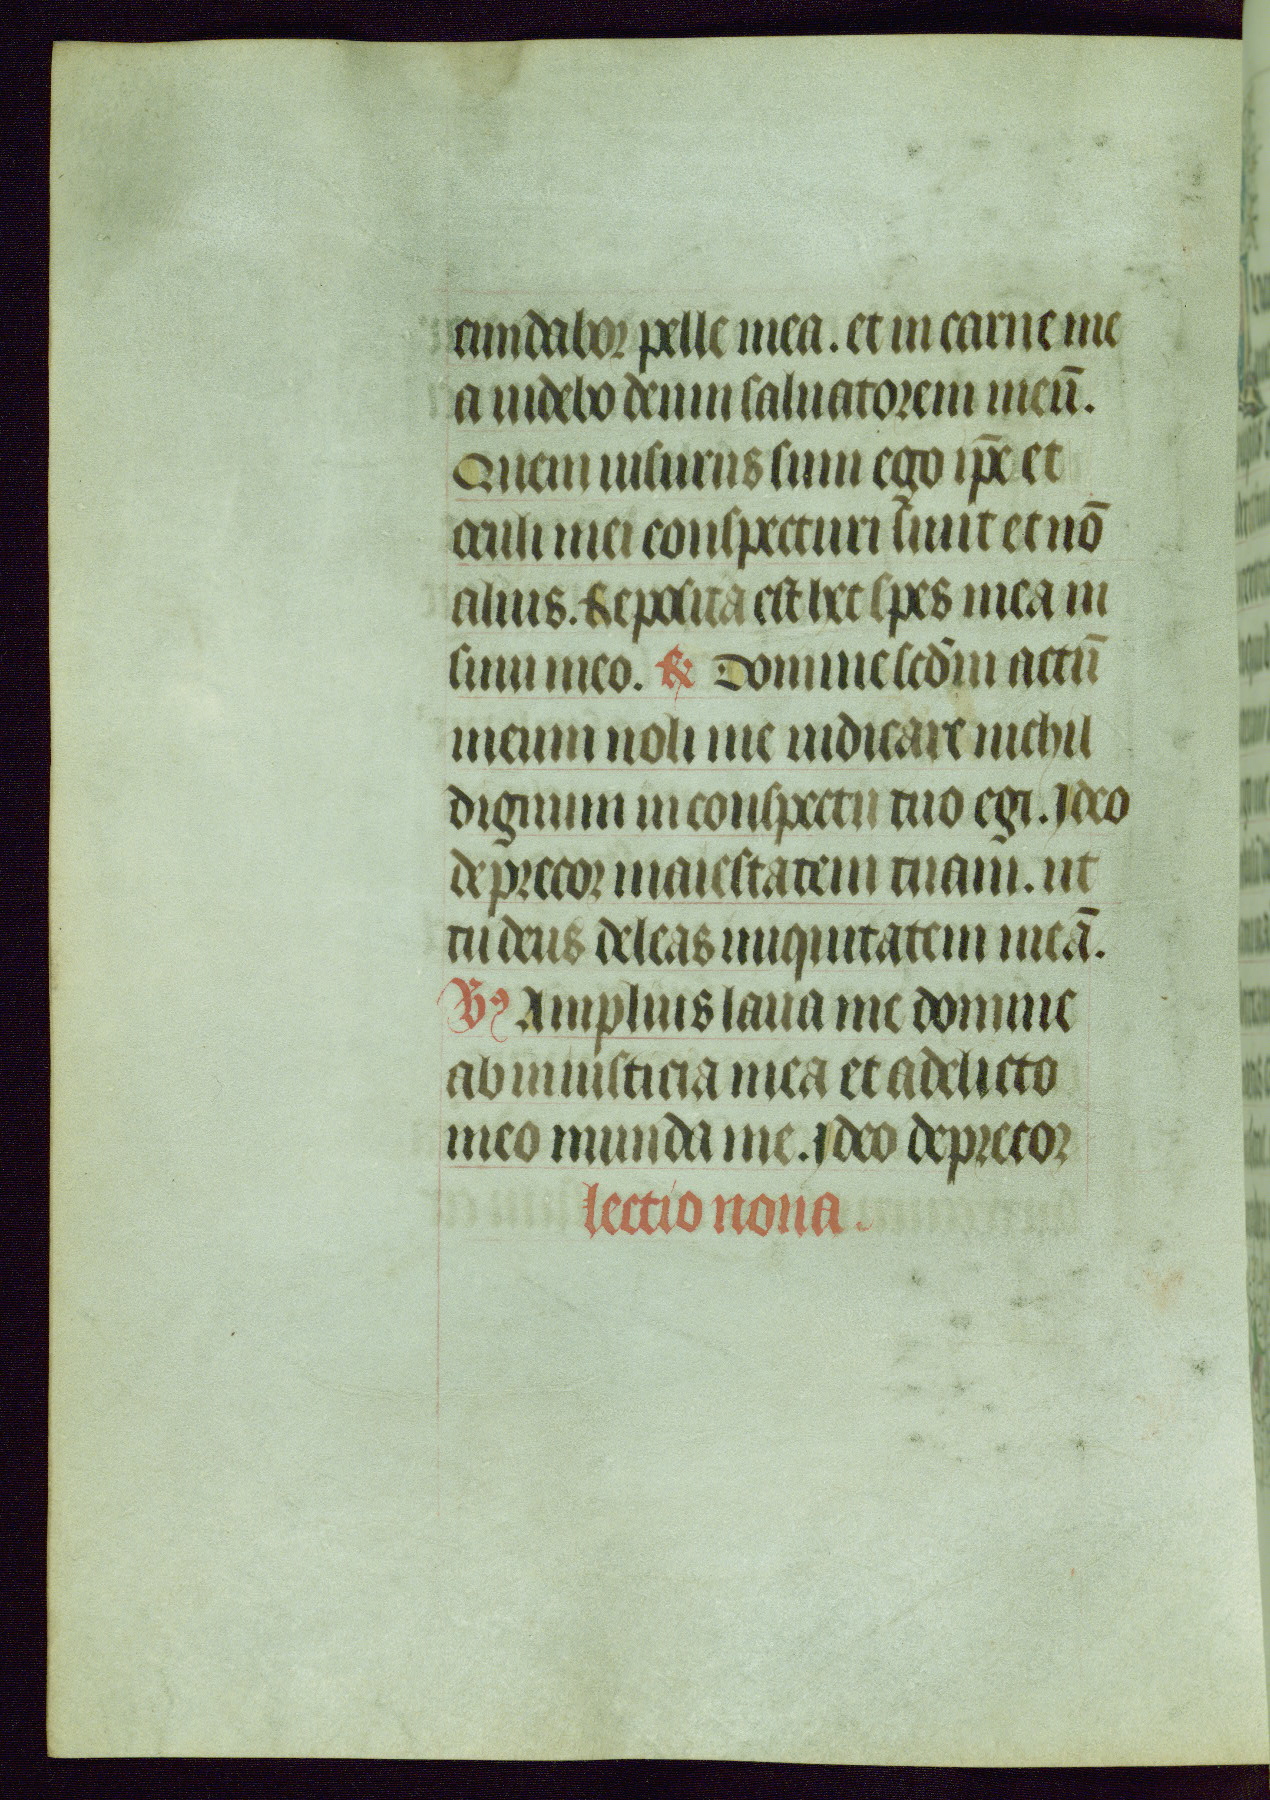 cundabor pelle mea. et in carne me
a uidebo deum saluatorem meū.
Quem uisurus sum ego ip̄e et
oculi mei conspecturi sunt et nō
alius. Reposita est hec spes mea in
sinu meo. ℟ Domine scd̄m actū
meum noli me iudicare nichil
dignum in conspectu tuo egi. Ideo
deprecor maiestatem tuam. ut
tu deus deleas iniquitatem meā.
℣ Amplius laua me domine
ab iniusticia mea et a delicto
meo munda me. Ideo deprecor
lectio nona.